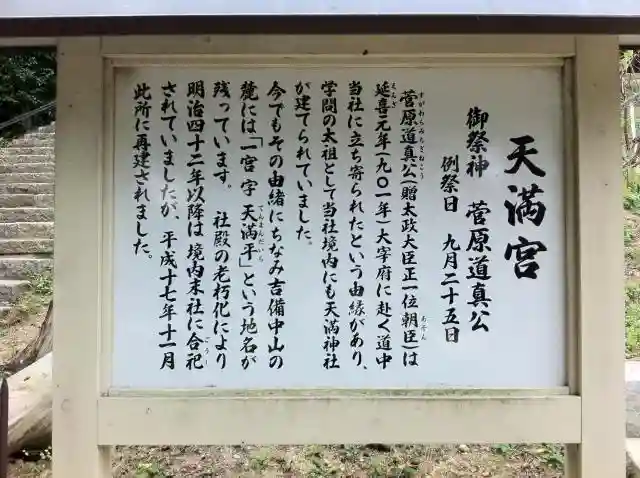 天満宮
御祭神　菅原道真公
例祭日　九月二十五日
菅原道真公(贈太政大臣正一位 朝臣)は
延喜元年(九〇一年)大宰府に赴く道中
当社に立ち寄られたという由縁があり、
学問の太祖として当社境内にも天満神社
が建てられていました。
今でもその由緒にちなみ吉備中山の
麓には「一宮字 天満平」という地名が
残っています。　社殿の老朽化により
明治四十二年以降は境内末社に合祀
されていましたが、平成十七年十一月
此所に再建されました。